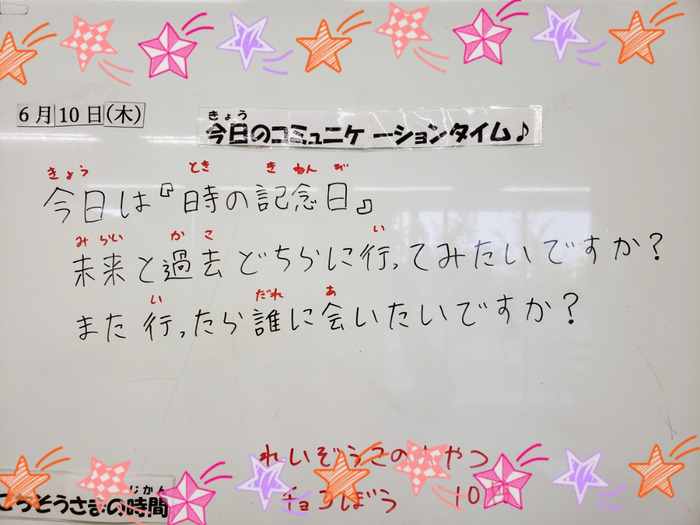 6月10日(木)
きょう
今日のコミュニケーションタイム♪
きょう とき き ねん び
今日は『時の記念日』
みらい かこ い
未来と過去どちらに行ってみたいですか?
い だれ あ
また行ったら誰に会いたいですか?
れいぞうこの やつ
チョコぼう 10
じかん
ごちそうさまの時間